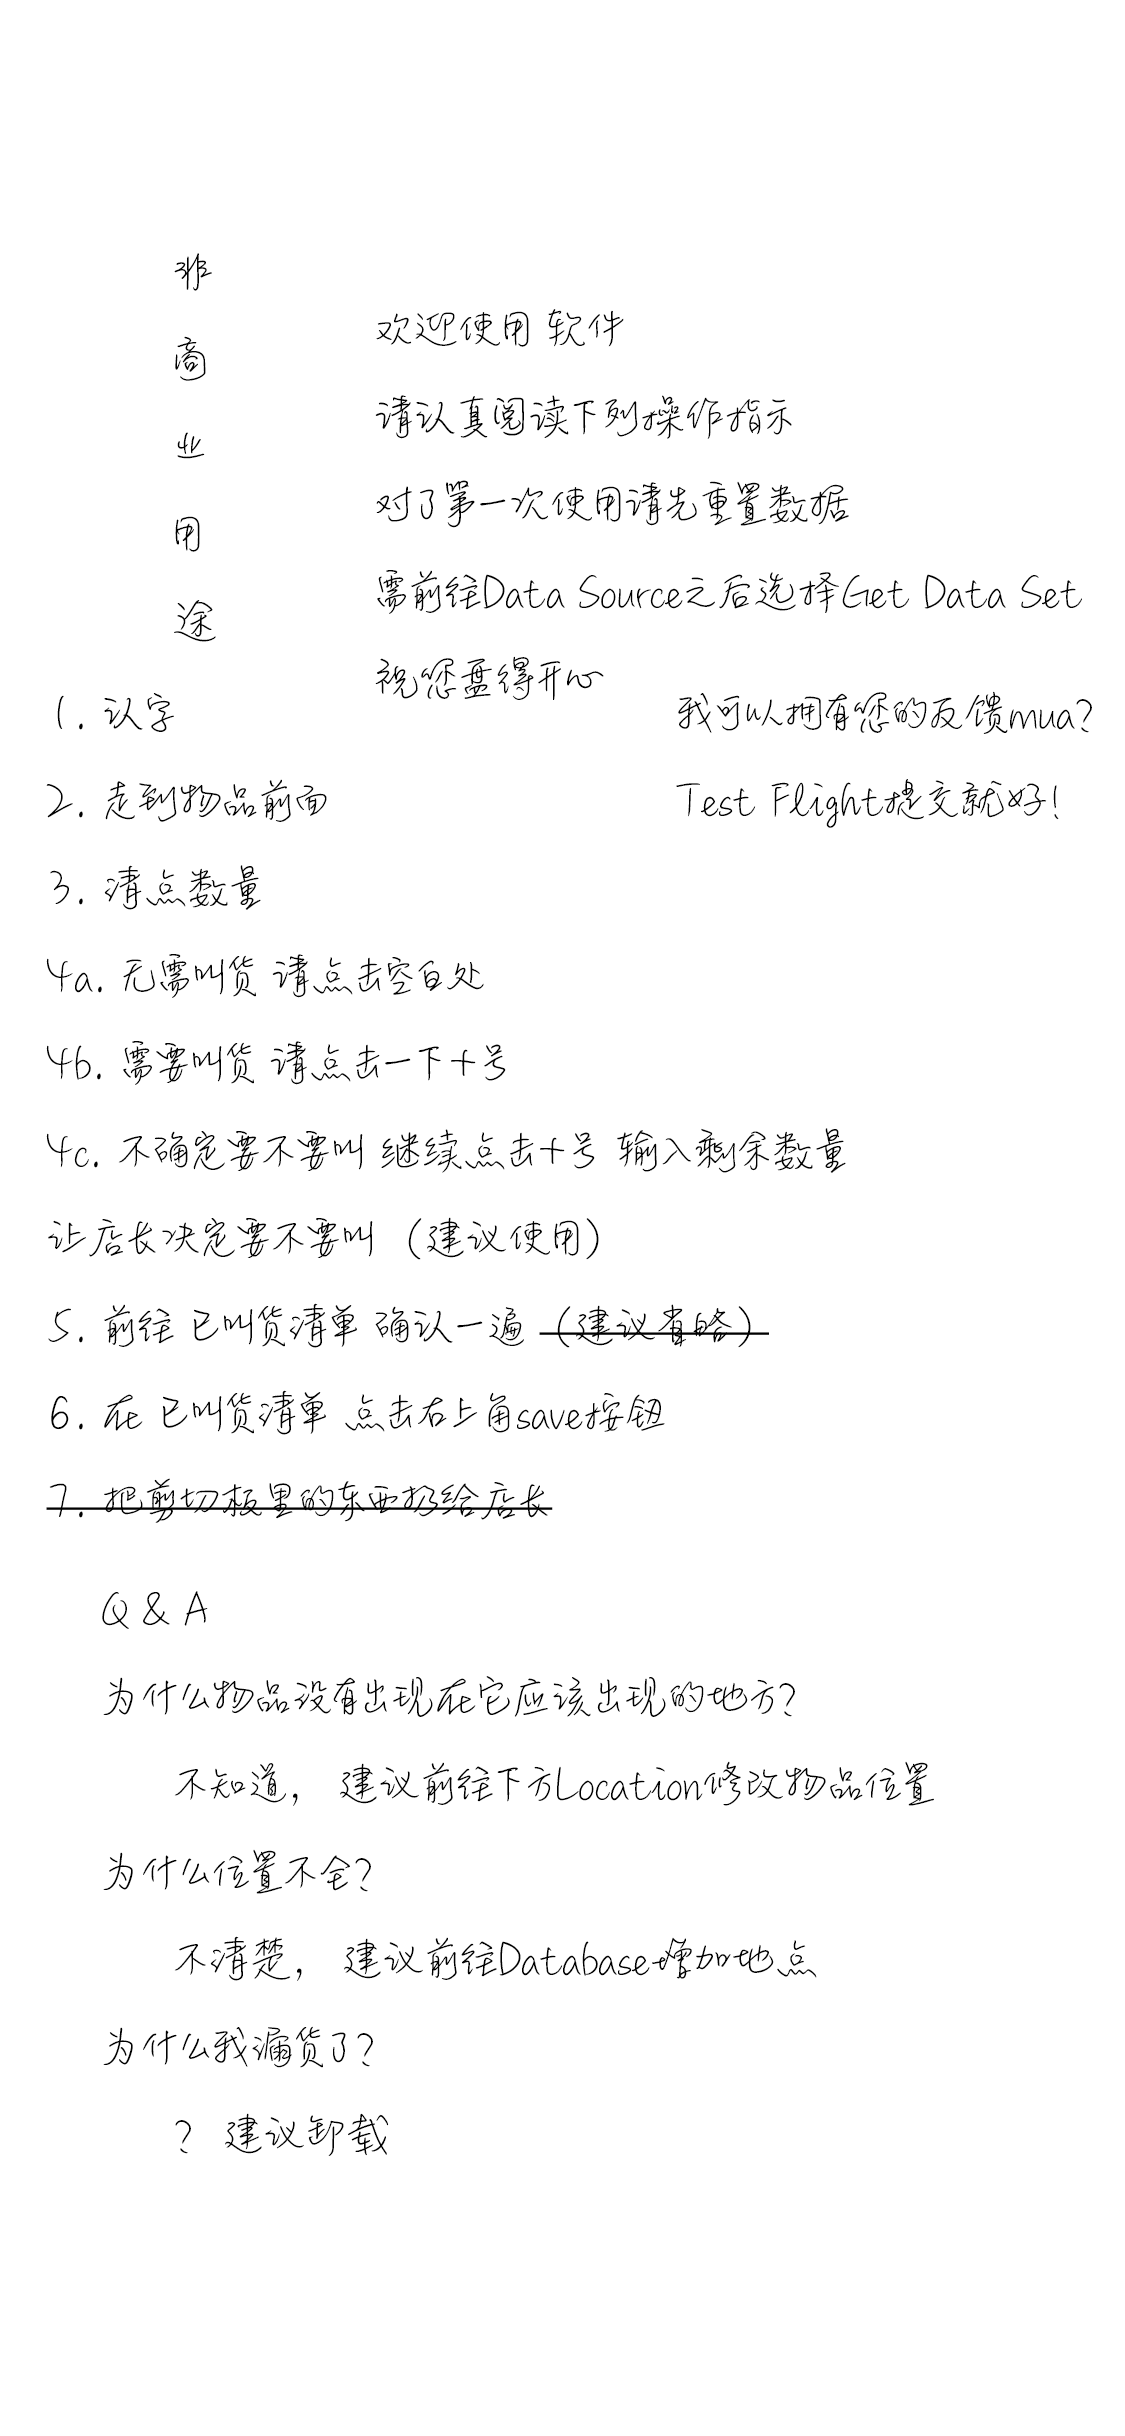 非商业用途
欢迎使用 软件
请认真阅读下列操作指示
对了第一次使用请先重置数据
需前往Data Source之后选择Get Data Set
祝您盘得开心
我可以拥有您的反馈mua?
Test Flight提交就好!
1. 认字
2. 走到物品前面
3. 清点数量
4a. 无需叫货 请点击空白处
4b. 需要叫货 请点击一下+号
4c. 不确定要不要叫 继续点击+号 输入剩余数量
让店长决定要不要叫（建议使用）
5. 前往 已叫货清单 确认一遍（建议省略）
6. 在 已叫货清单 点击右上角save按钮
7. 把剪切板里的东西扔给店长
Q & A
为什么物品没有出现在它应该出现的地方?
不知道， 建议前往下方Location修改物品位置
为什么位置不全?
不清楚， 建议前往Database增加地点
为什么我漏货了?
? 建议卸载